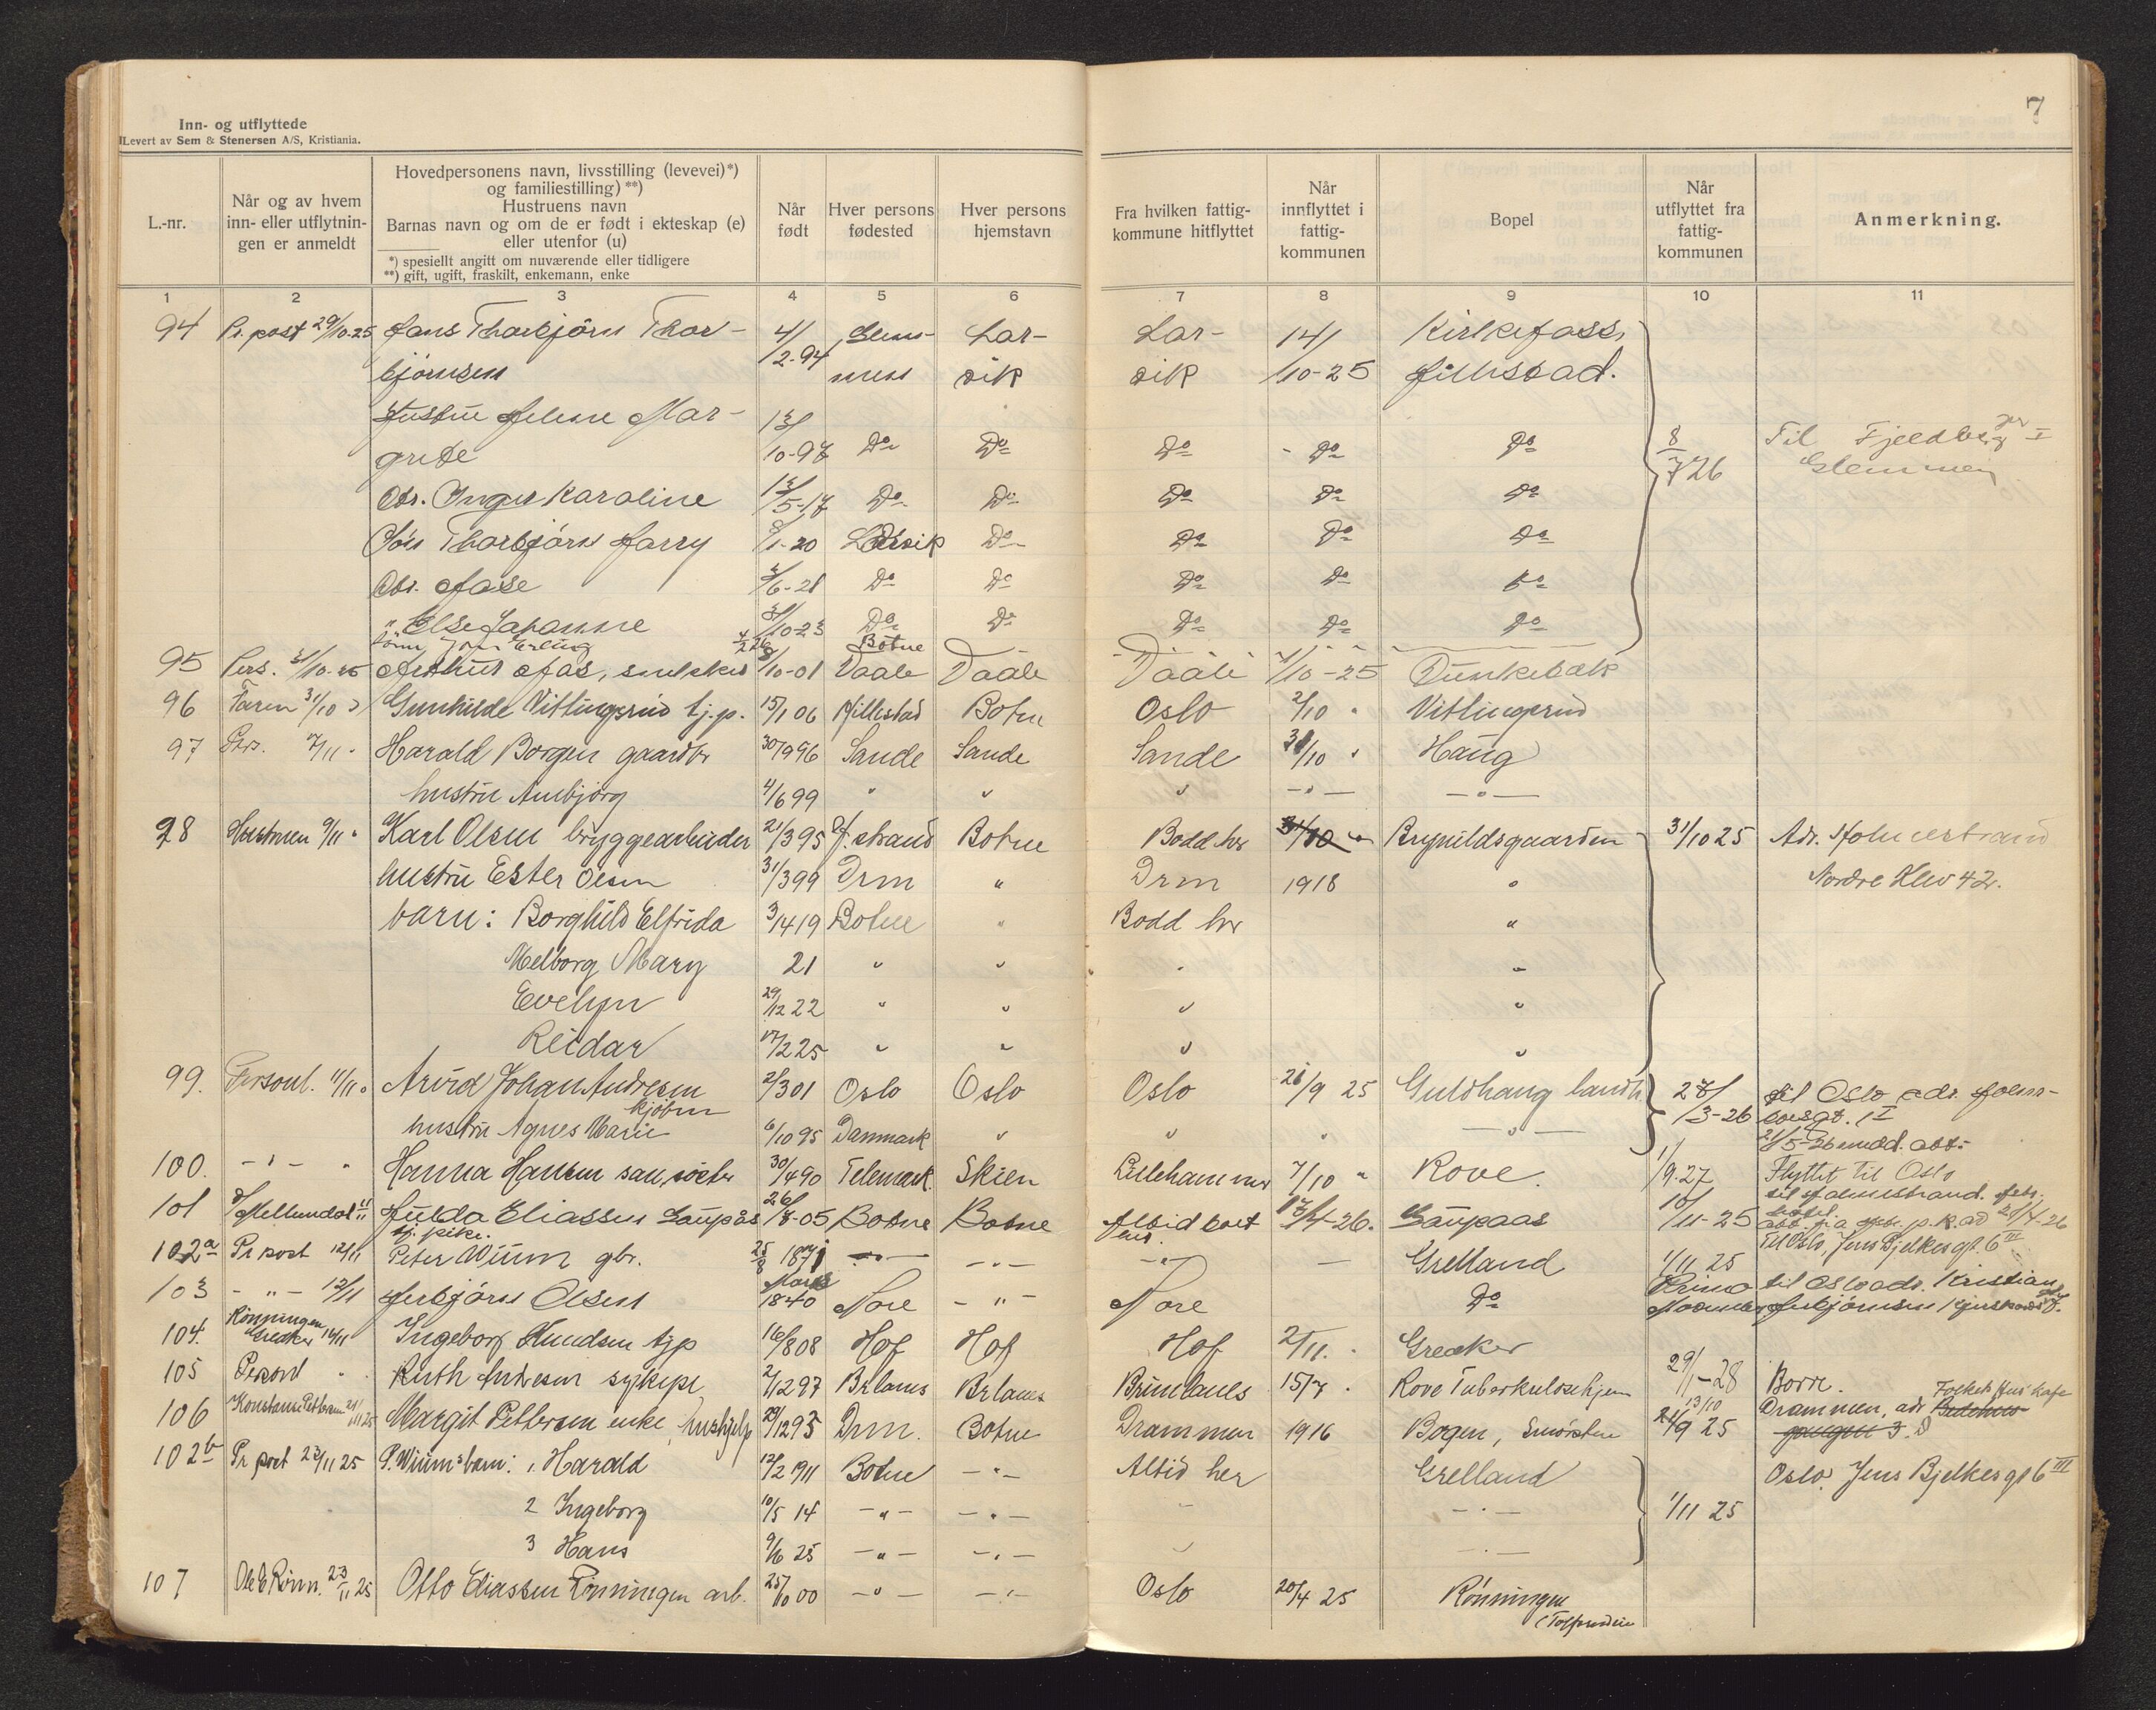 7
Inn- og utflyttede
Levert av Sem & Stenersen A/S, Kristiania.
L.-nr.
Når og av hvem inn- eller utflytnin- gen er anmeldt
Hovedpersonens navn, livsstilling (levevei)*)
og familiestilling)**)
Hustruens navn
Barnas navn og om de er født i ekteskap (e)
eller utenfor (u)
*) spesiellt angitt om nuværende eller tidligere
**) gift, ugift, fraskilt, enkemann, enke
Når født
Hver persons fødested
Hver persons hjemstavn
Fra hvilken fattig- kommune hitflyttet
Når innflyttet i fattig- kommunen
Bopel
Når utflyttet fra fattig- kommunen
Anmerkning.
1 2 3 4 5 6 7 8 9 10 11
94 Pr. post 29/10-25 Hans Thorbjörn Thor- 4/ Lar- Lar- 14/
bjørnsen 12-94 vik vik /10-25 Hillestad.
Hustru Helene Mar- 13/
grete 10-97 Do Do Do - Do Do 8/7 26 Til Fjeldberg
Glemmen
Dtr. Inger Karoline 13/5-17 Do Do Do Do Do
Sön Thorbjörn Harry /1-20 Larvik Do Do Do Do
Dtr. Aase /6-21 Do Do Do Do Do
" Else Johanne /10-23 Do Do Do Do Do
sönn Erling 4/2 26 Botne
95 Pers. 31/10-25 Arthur Aas, snekker /10-01 Vaale Vaale Vaale 1/10-25 Dunkebæk
96 31/10 " Gunhilde Vittingsrud tj.p. 15/1 06 Hillestad Botne Oslo 2/10 " Vittingsrud
97 Pers. 7/11 " Harald Borgen gaardbr 30/9 96 Sande Sande Sande 31/10 " Haug
hustru Ambjørg 4/6 99 " " " — " — — " —
98 Hustruen 9/11 " Karl Olsen bryggearbeider 21/3 95 H. strand Botne Bodd her 31/10 " Brynildsgaarden 31/10 25 Adr. Holmestrand
hustru Ester Olsen 31/3 99 Drm " Drm 1918 " Nordre Klev 42.
barn: Borghild Elfrida 3/4 19 Botne " Bodd her "
Melborg Mary 21 " " " "
Evelyn 29/12 22 " " " "
Reidar 17/2 25 " " " "
99. Personl. 11/11 " Arvid Johan Andresen 2/3 01 Oslo Oslo Oslo 21/9 25 Guldhaug landh. 27/ til Oslo adr. Holm-
kjøbm /3-26 boesgt. 1 I
hustru Agnes Marie 6/10 95 Danmark " " " — " — 21/5-26 medd. att.
100. - " - " Hanna Hansen san. søster 30/4 90 Telemark. Skien Lillehammer 7/10 " Rove. 1/9.27 Flyttet til Oslo
101 Mellundal 11/11 Hulda Eliassen Gaupås 26/8-05 Botne Botne Altid boet 17/4-26. Gaupaas 10/11-25 til Holmestrand.
tj. pike. her.
102a Pr post 12/11 Peter Wium gbr. 25/8 1871 — " — — " — — " — — Grelland 1/11 25 Til Oslo, Jens Bjelkesgt. 6 III
103 - " - 12/11 Herbjörn Olsen 1840 Nore - " - Nore Do Primo til Oslo adr. Kristian
November
104. Rönningen Greaker 12/11 Ingeborg Knudsen tjp 16/8 08 Hof Hof Hof 2/11. " Greaker
105 Personl " Ruth Andresen sykepl 2/12 97 Brlanes Brlanes Brunlanes 15/7 " Rove Tuberkulosehjem 29/1-28 Borre.
106 Konstanse Pettersen 21/11 25 Margit Pettersen enke, hushjelp 29/12 95 Drm. Botne Drammen 1916 Bogen, Smörsten 13/10 21/9 25 Drammen, adr Folkets Hus kafe
102b Pr post 23/11 25 P. Wiums barn: 1. Harald 12/2 1911 Botne — " — Altid her Grelland Oslo. Jens Bjelkesgt 6 III
2 Ingeborg 10/5 14 — " — — " — " — " — 1/11 25
3 Hans 9/6 25 — " — — " — " — " —
107 Ole E Rönn. 23/11 25 Otto Eliassen Rönningen arb. 25/10 00 — " — — " — Oslo 20/4 25 Rönningen